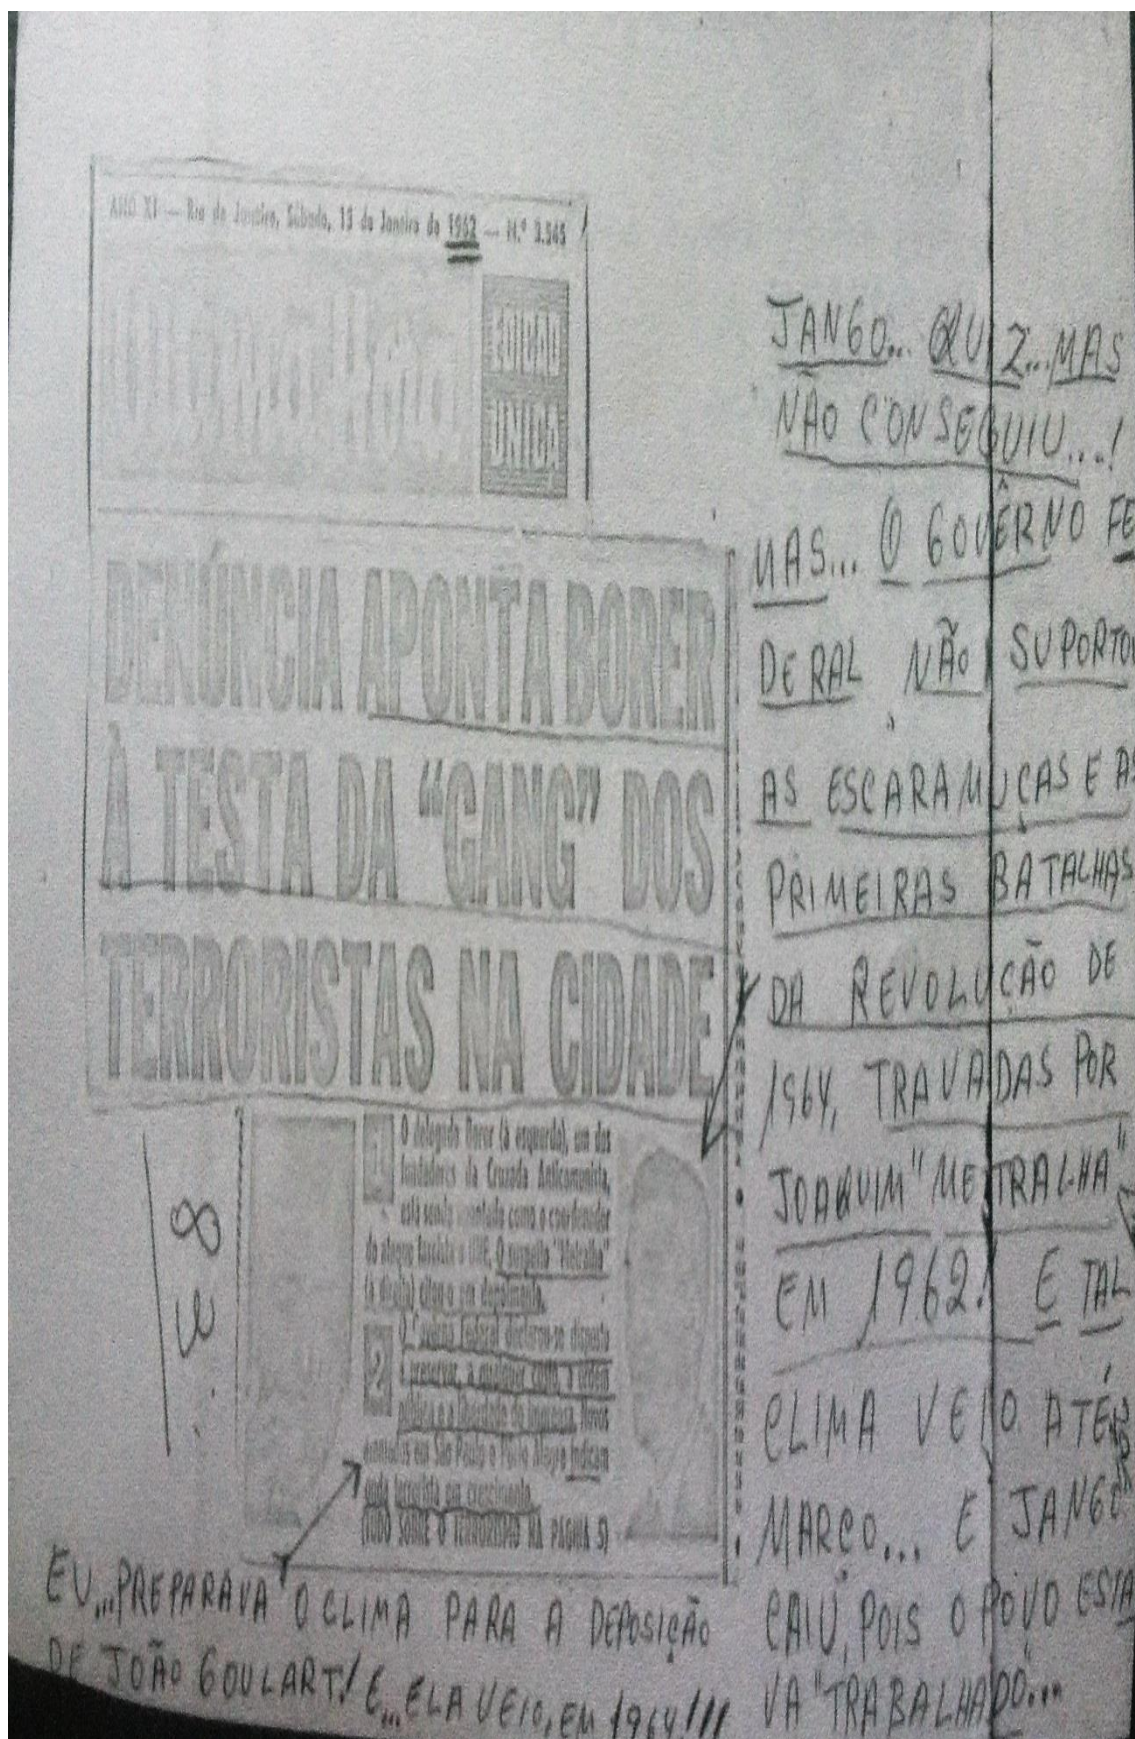 ANO XI — Rio de Janeiro, Sábado, 13 de Janeiro de 1962 — N.º 3.545
EDIÇÃO
ÚNICA
DENÚNCIA APONTA BORER
À TESTA DA "GANG" DOS
TERRORISTAS NA CIDADE
1
O delegado Borer (à esquerda), um dos
fundadores da Cruzada Anticomunista,
está sendo apontado como o coordenador
do ataque fascista a UNE. O suspeito "Metralha"
(à direita) em depoimento.
2
O Governo Federal declarou-se disposto
a preservar, a qualquer custo, a ordem
pública e a liberdade de imprensa. Novos
atentados em São Paulo e Pôrto Alegre indicam
onda terrorista em crescimento.
(TUDO SOBRE O TERRORISMO NA PÁGINA 5)
EU...PREPARAVA O CLIMA PARA A DEPOSIÇÃO
DE JOÃO GOULART! E...ELA VEIO, EM 1964!!!
JANGO... QUIZ...MAS
NÃO CONSEGUIU...!
MAS... O GOVÊRNO FE
DERAL NÃO SUPORTOU
AS ESCARAMUÇAS E AS
PRIMEIRAS BATALHAS
DA REVOLUÇÃO DE
1964, TRAVADAS POR
JOAQUIM "METRALHA"
EM 1962! E TAL
CLIMA VEIO ATÉ
MARÇO... E JANGO
CAIU, POIS O POVO ESTA
VA "TRABALHADO"...